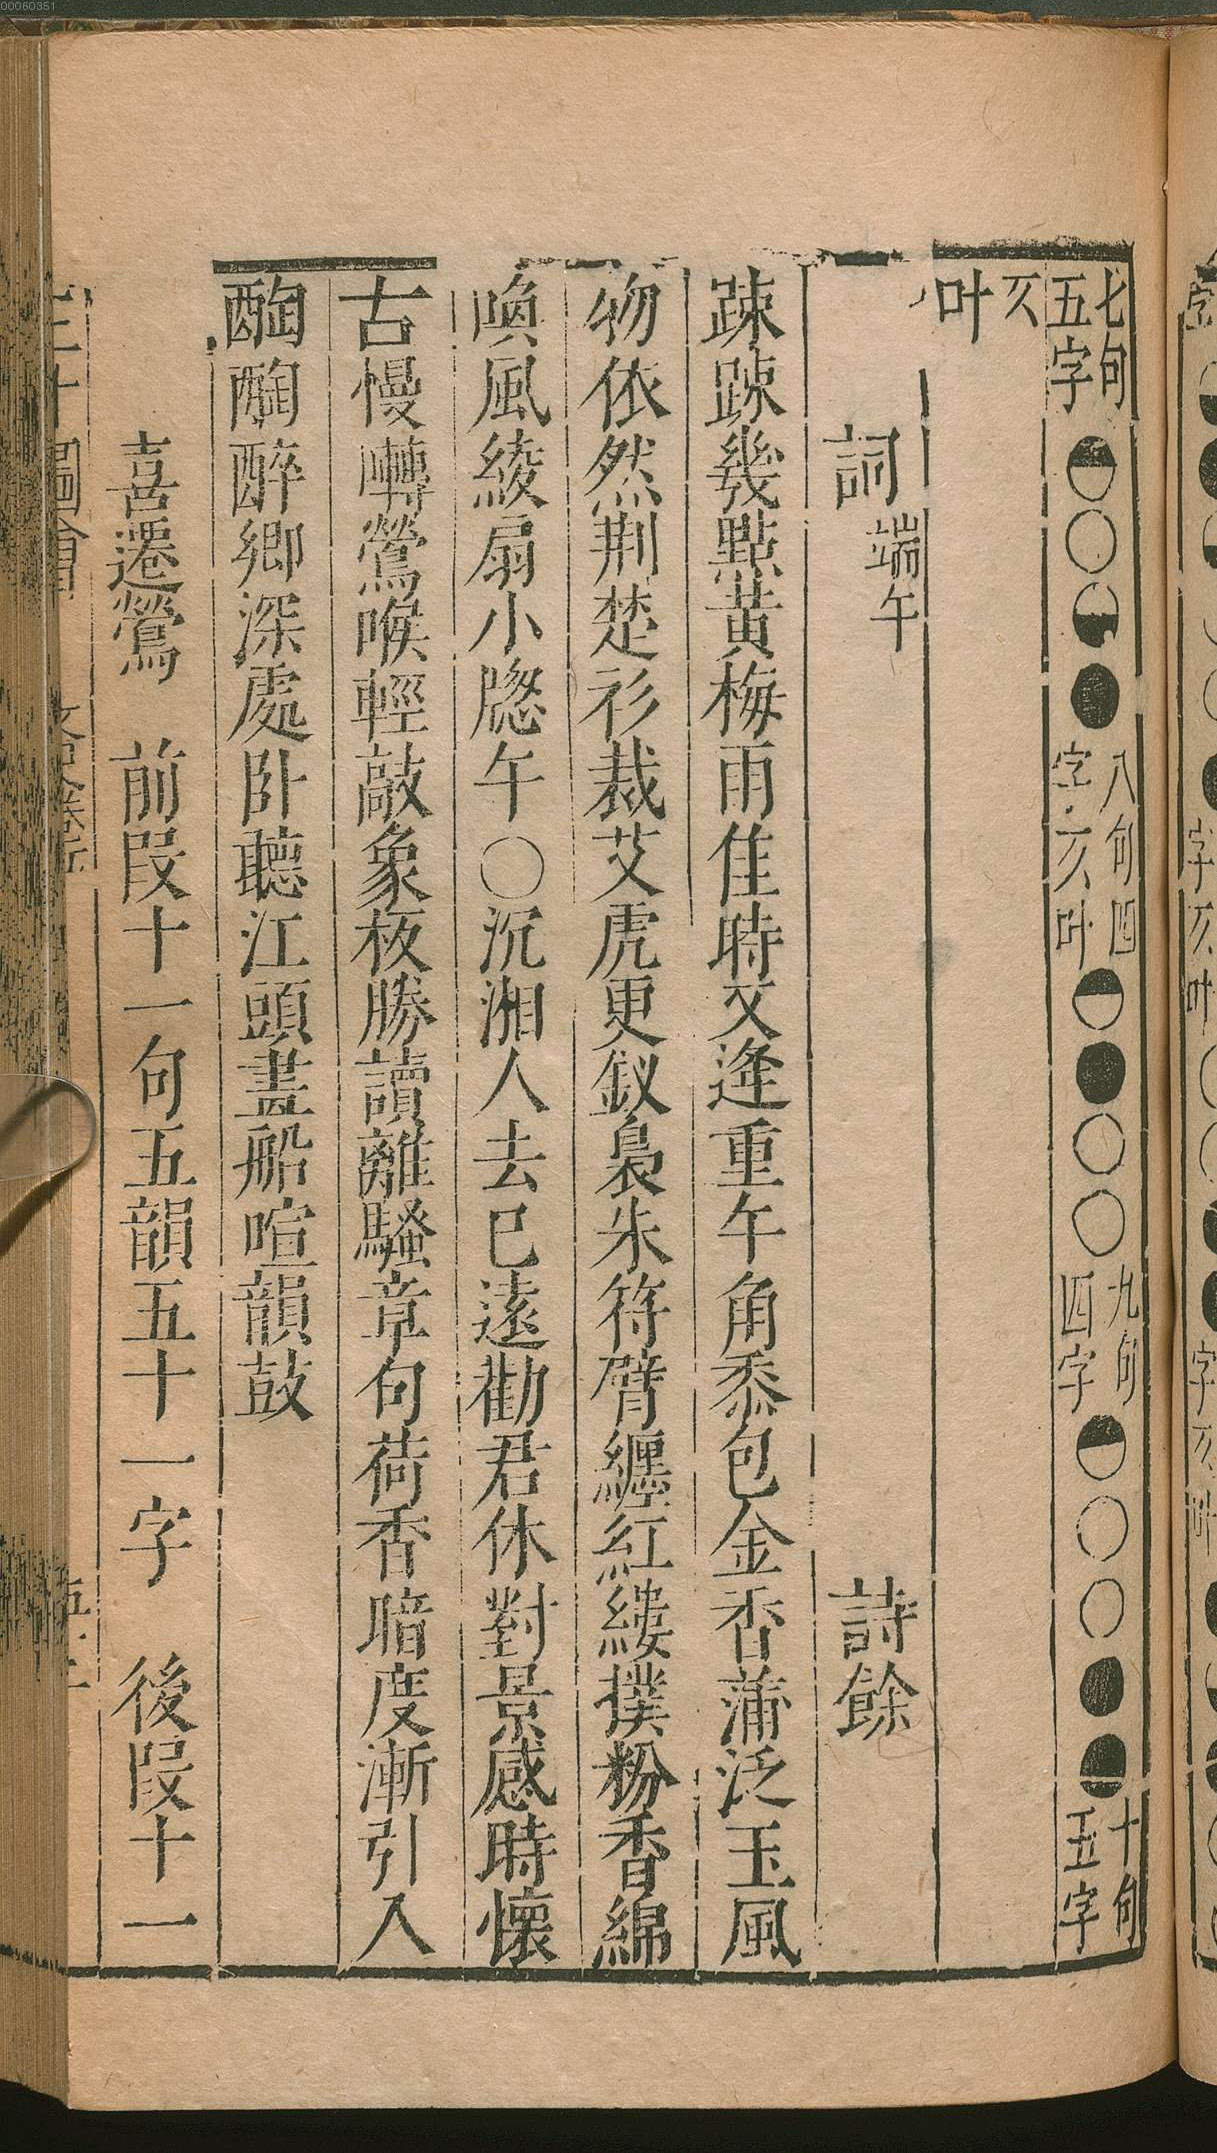 00060351
七句五字◓○◒●八句四字亥叶◓●○○九句四字◓○○●◓十句五字
亥叶
詞端午　詩餘
疎疎幾點黃梅雨佳時又逢重午角黍包金香蒲泛玉風
物依然荆楚衫裁艾虎更釵裊朱符臂纏紅縷撲粉香綿
喚風綾扇小牕午○沉湘人去已遠勸君休對景感時懷
古慢囀鶯喉輕敲象板勝讀離騷章句荷香暗度漸引入
醄醄醉鄉深處卧聽江頭畫船喧韻鼓
喜遷鶯　前段十一句五韻五十一字　後段十一